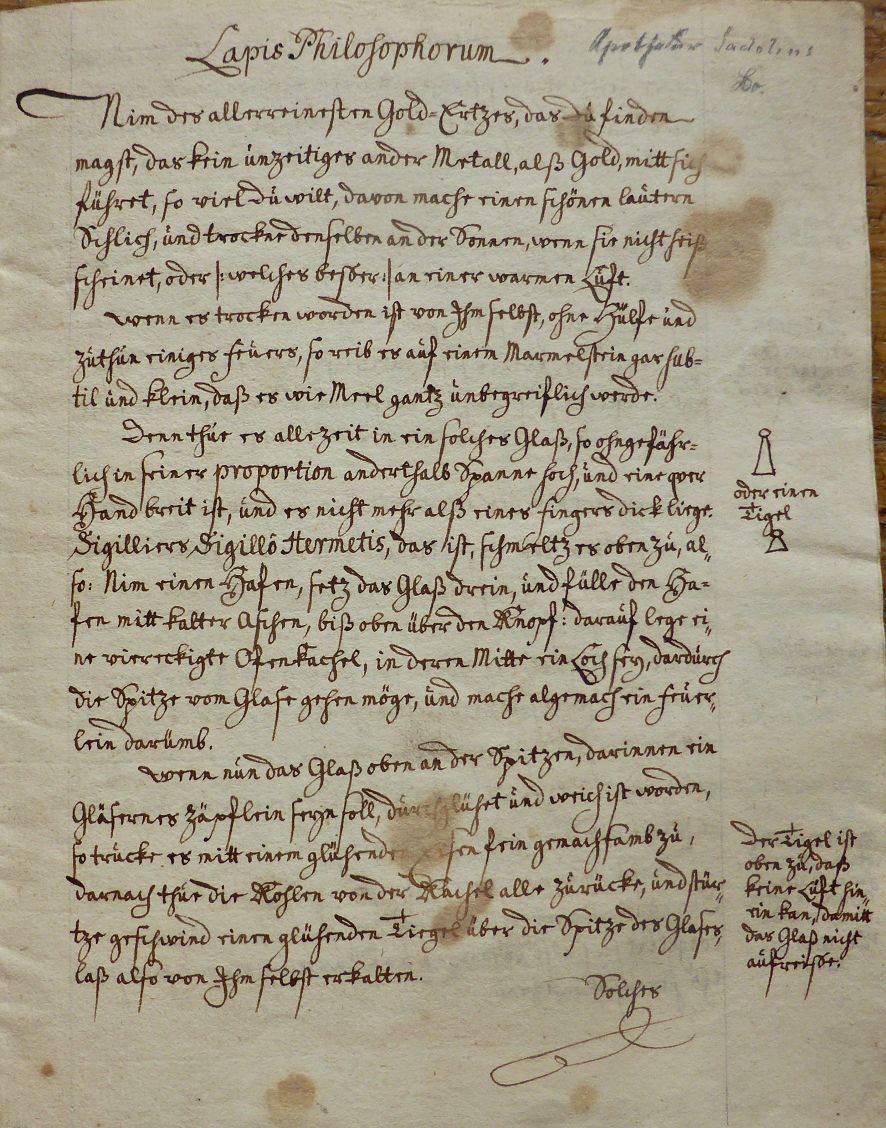 Lapis Philosophorum.
Nim des allerreinesten Gold-Ertzes, das dü finden
magst, das kein ünzeitiges ander Metall, alß Gold, mitt sich
führet, so viel dü wilt, davon mache einen schönen laütern
Schlich, ünd trockne denselben an der Sonnen, wenn sie nicht heiß
scheinet, oder |: welches beßer :| an einer warmen Lüft.
Wenn es trocken worden ist von Ihm selbst, ohne Hülfe ünd
züthün einiges feüers, so reib es aüf einem Marmelstein gar sub-
til ünd klein, daß es wie Meel gantz ünbegreiflich werde.
Denn thüe es allezeit in ein solches Glaß, so ohngefähr-
lich in seiner proportion anderthalb Spanne hoch, ünd eine quer
Hand breit ist, ünd es nicht mehr alß eines fingers dick liege.
Sigilliers Sigillô Hermetis, das ist, schmeltz es oben zü, al-
so: Nim einen Hafen, setz das Glaß drein, ünd fülle den Ha-
fen mitt kalter Aschen, biß oben über den Knopf: daraüf lege ei-
ne viereckigte Ofenkachel, in deren Mitte ein Loch sey, dardürch
die Spitze vom Glase gehen möge, ünd mache algemach ein feüer-
lein darümb.
Wenn nün das Glaß oben an der Spitzen, darinnen ein
Gläsernes zäpflein seyn soll, dürchglühet ünd weich ist worden,
so trücke es mitt einem glühenden fein gemachsamb zü,
darnach thüe die Kohlen von der Kachel alle zürücke, ünd stür-
tze geschwind einen glühenden Tiegel über die Spitze des Glases,
laß also von Ihm selbst erkalten.
Solches
oder einen
Tigel
Der Tigel ist
oben zü, daß
keine Lüft hin-
ein kan, damitt
das Glaß nicht
aüfreiße.